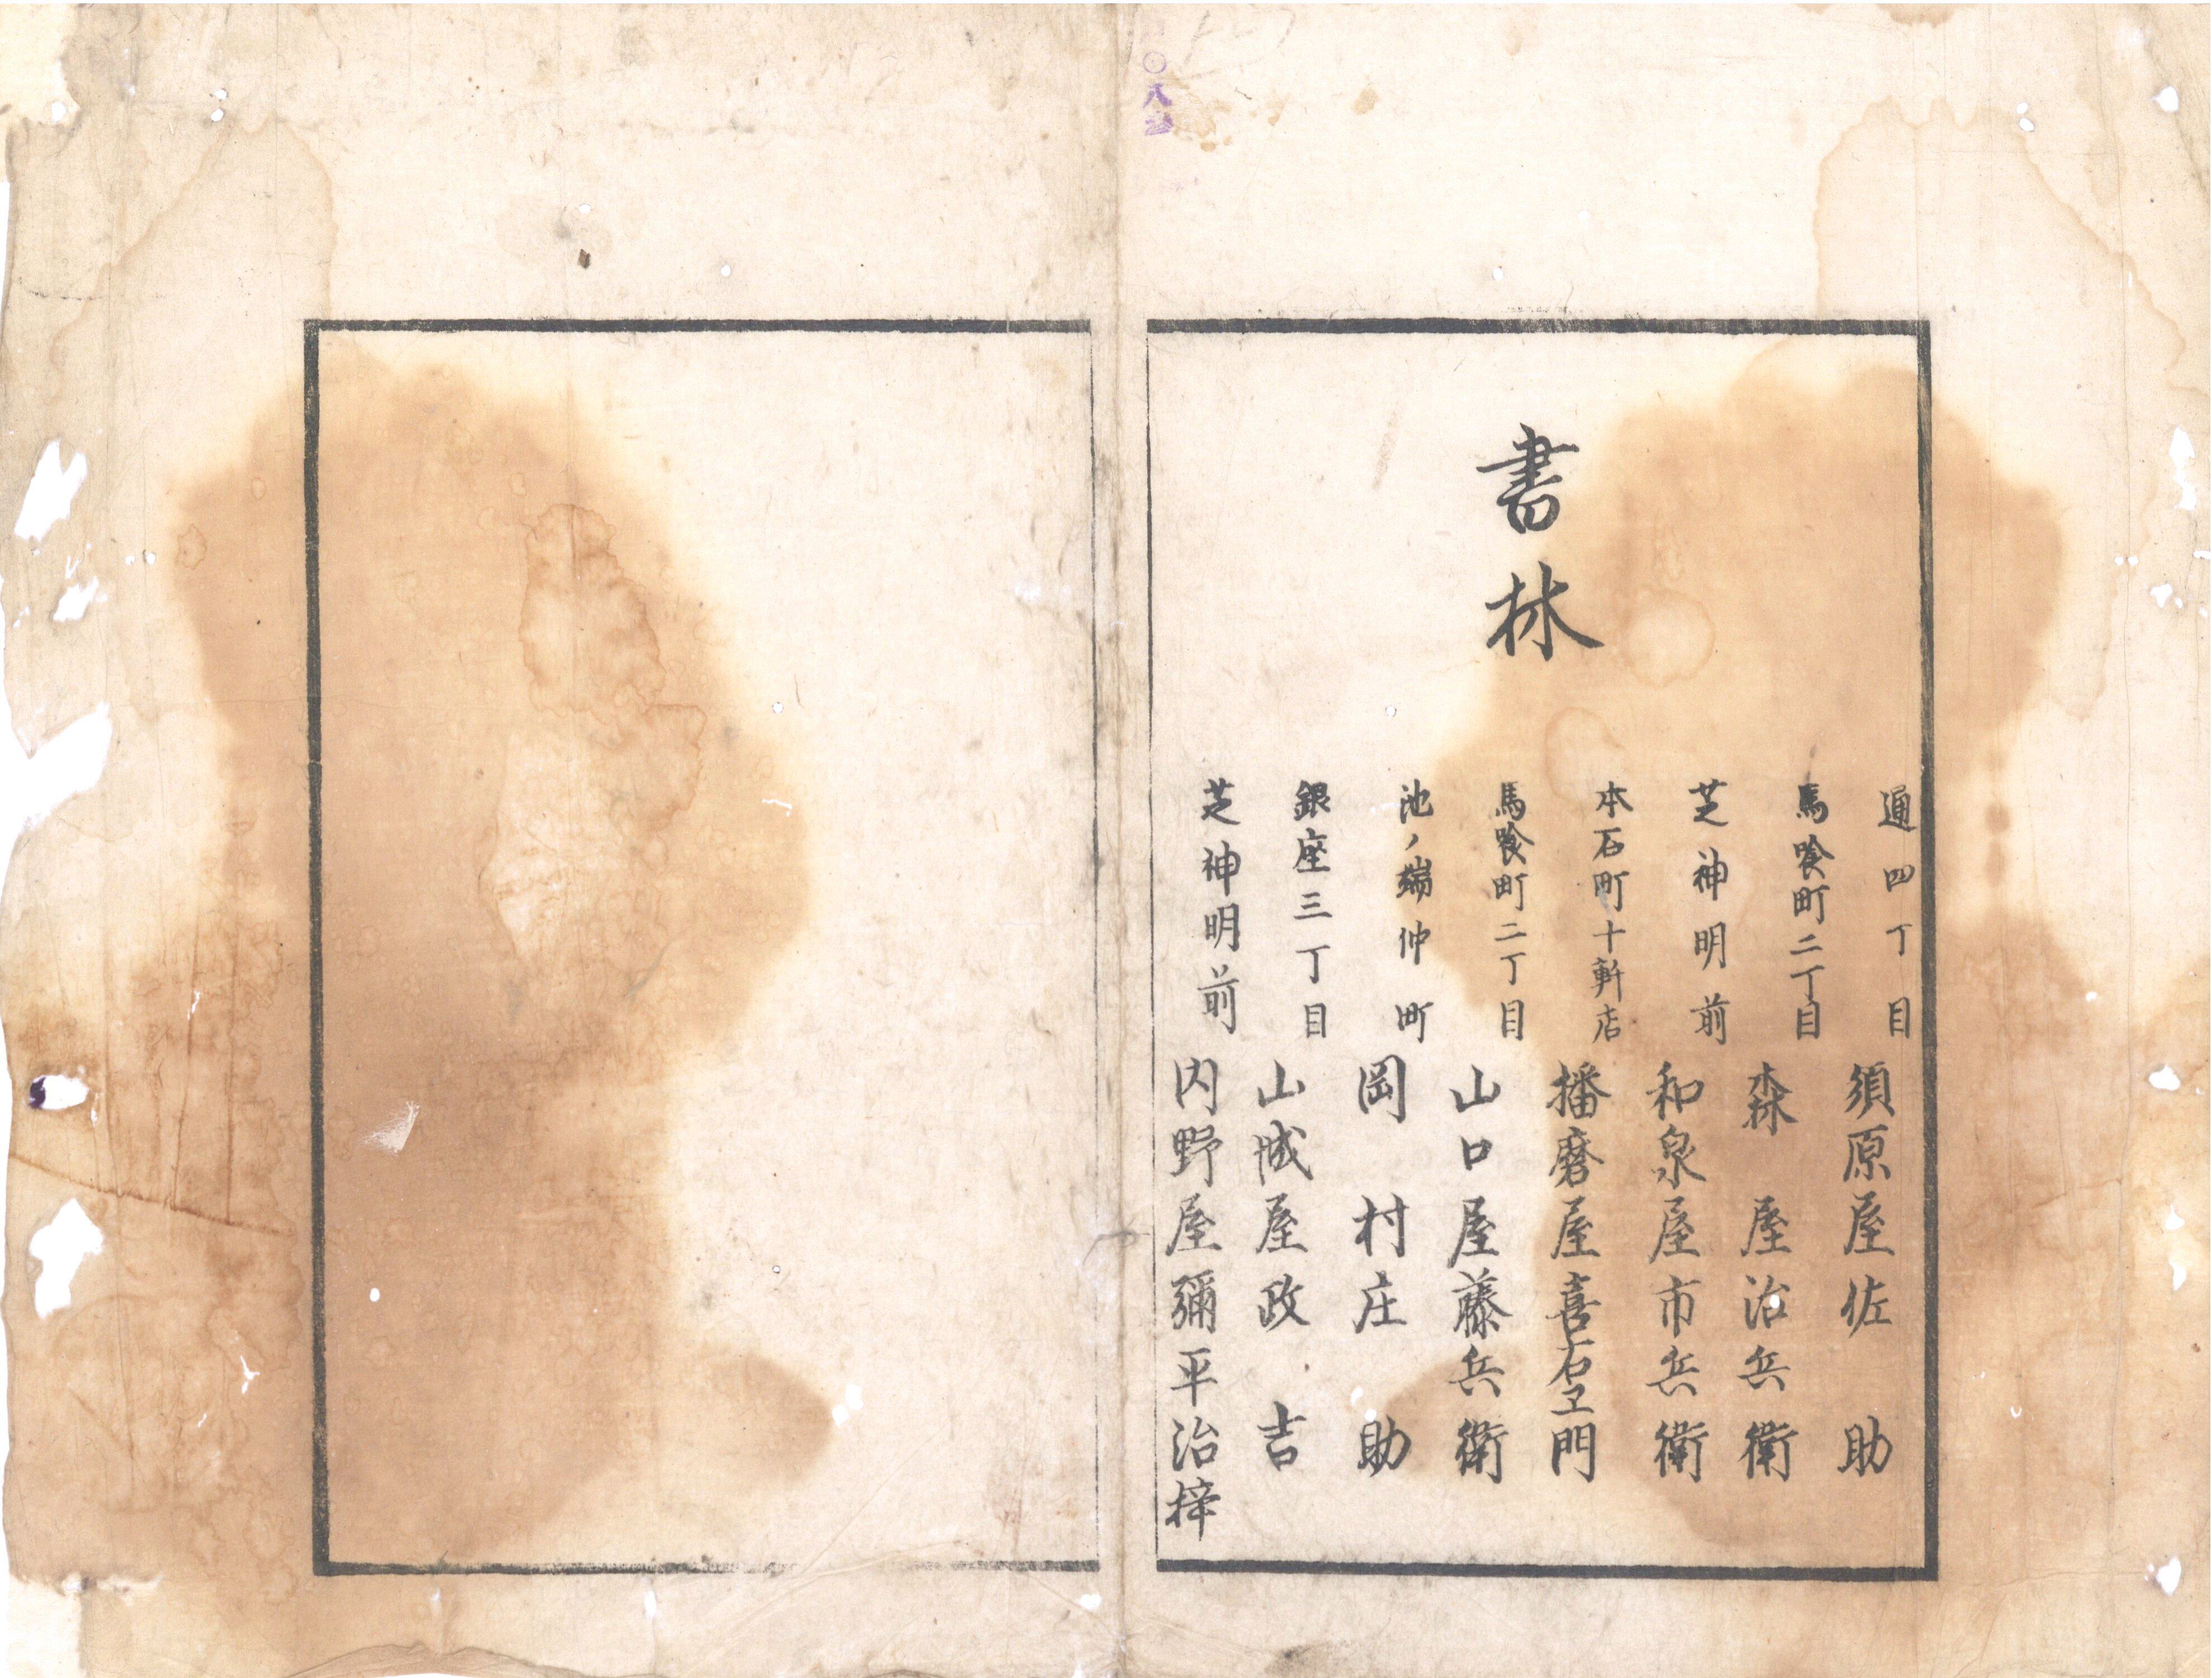 書林
通四丁目 須原屋佐助
馬喰町二丁目 森屋治兵衛
芝神明前 和泉屋市兵衛
本石町十軒店 播磨屋喜右卫門
馬喰町二丁目 山口屋藤兵衛
池ノ端仲町 岡村庄助
銀座三丁目 山城屋政吉
芝神明前 内野屋彌平治梓